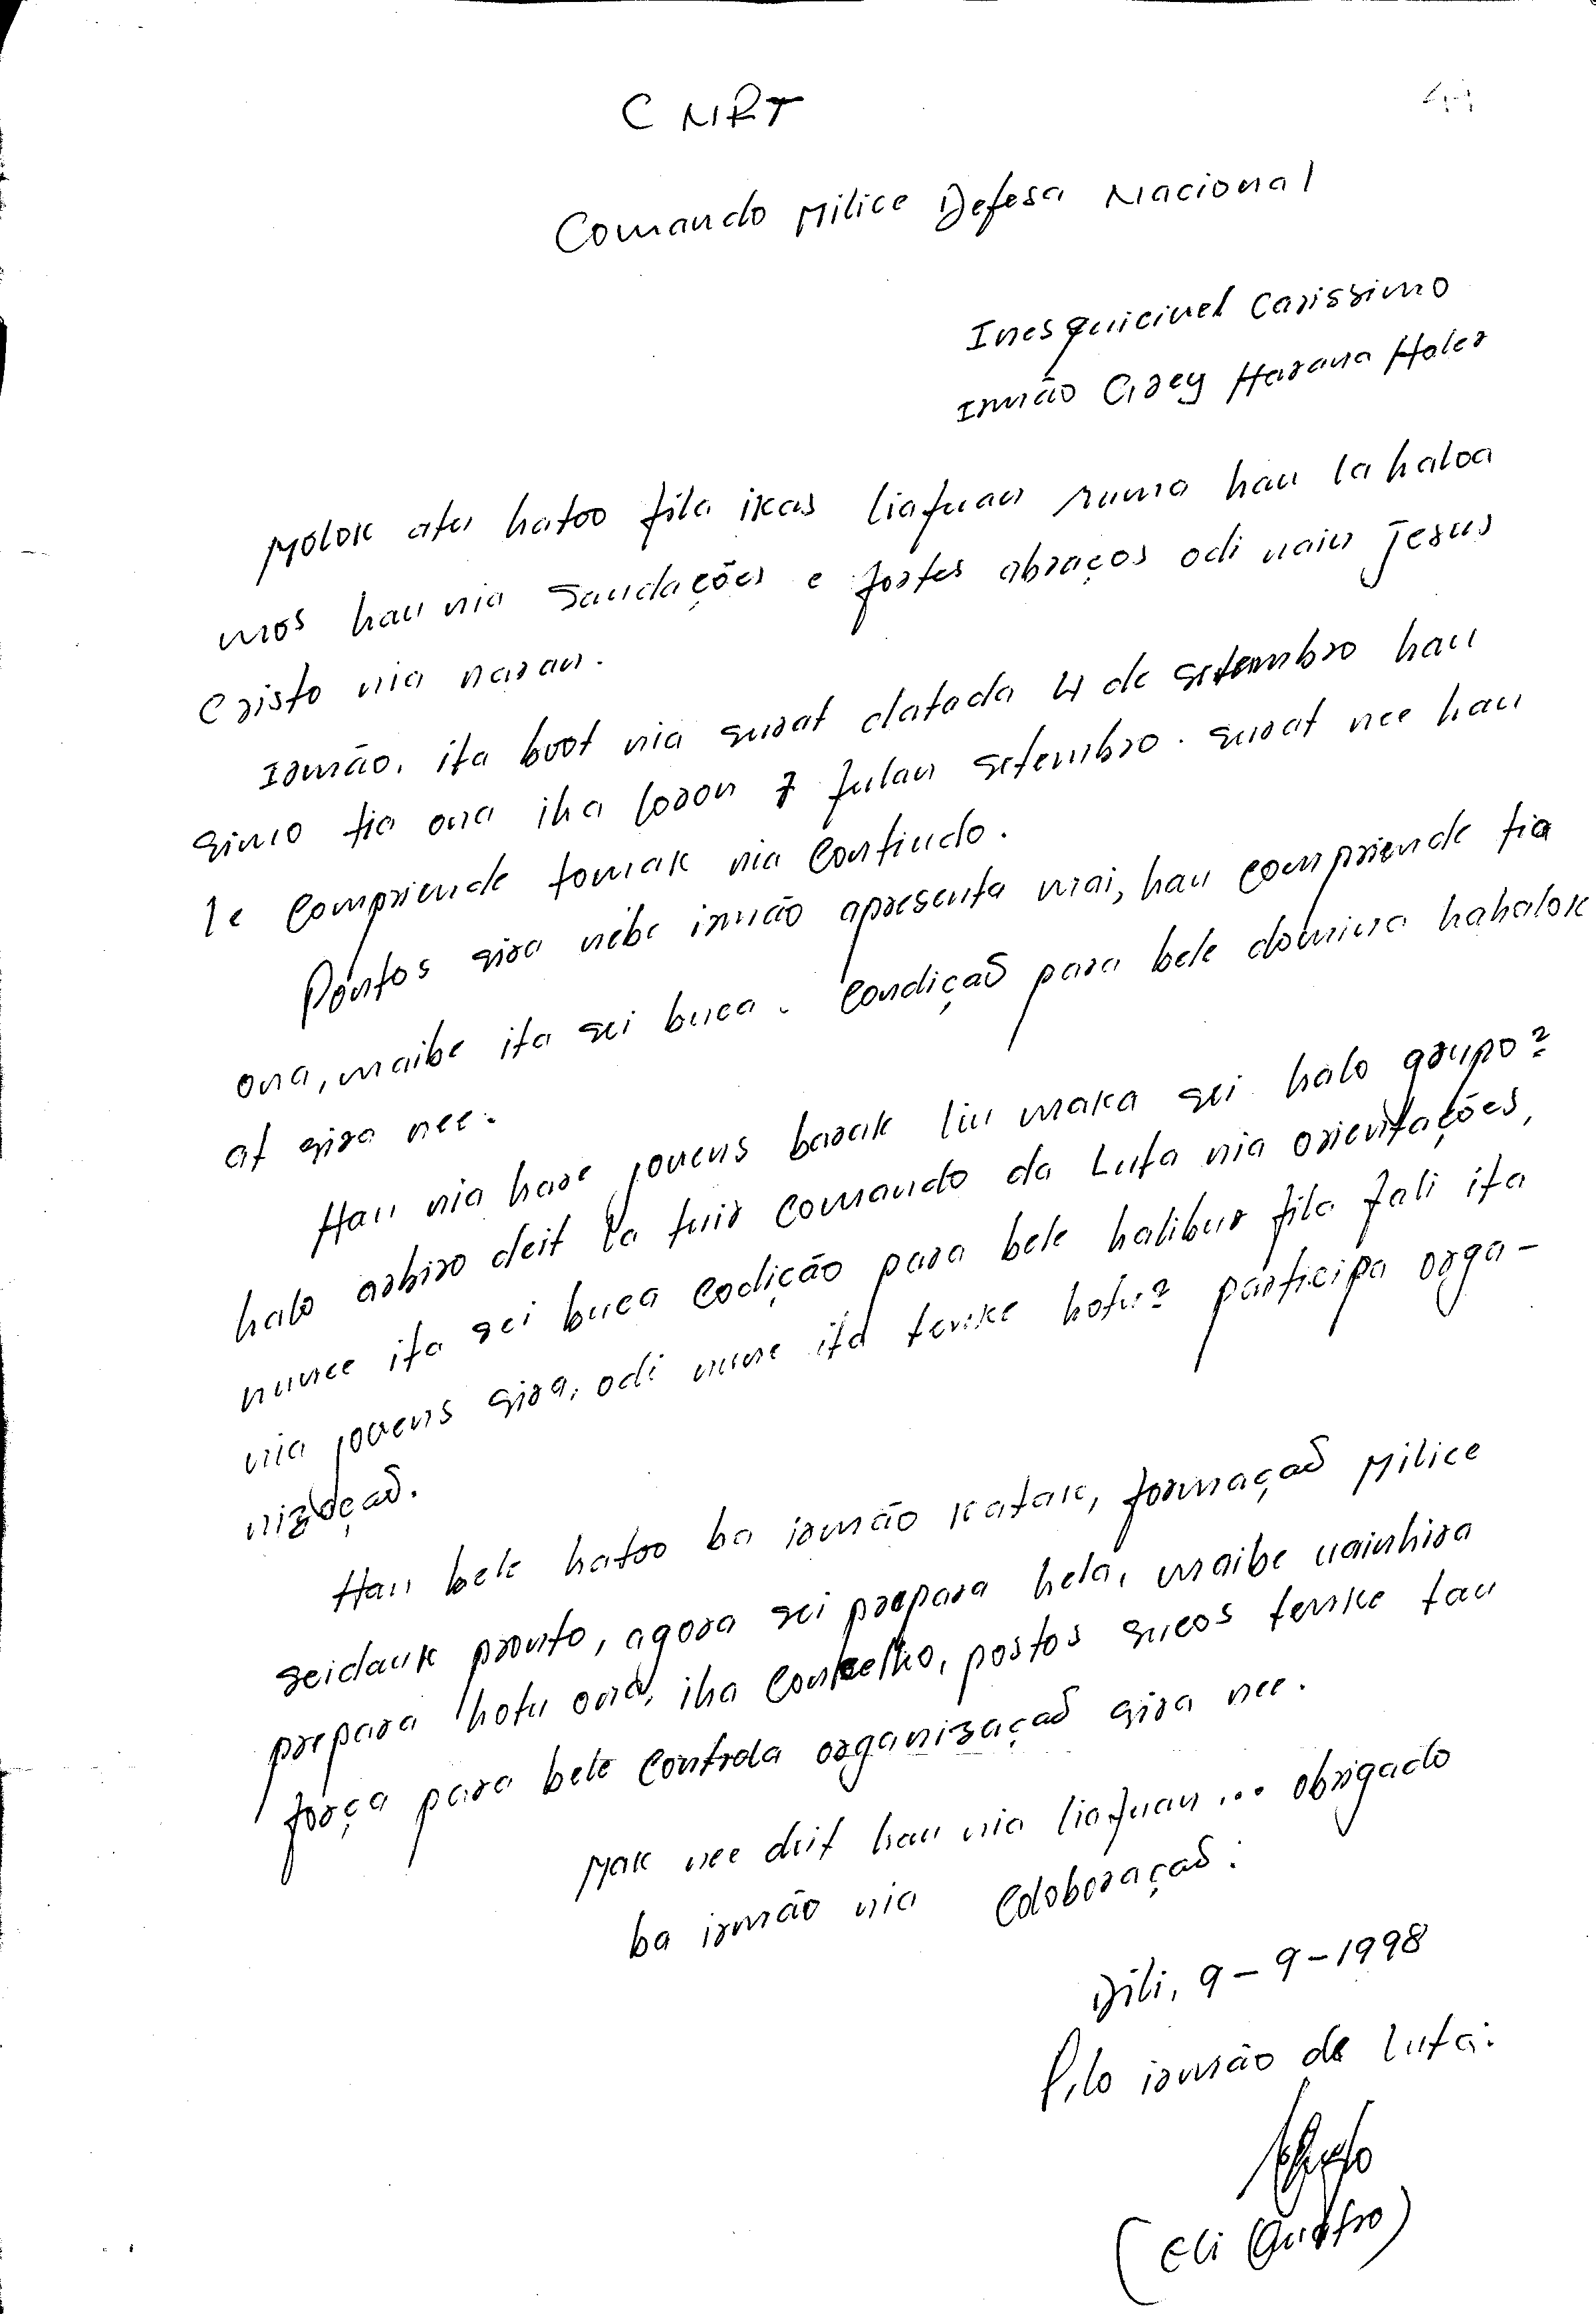 C NRT
Comando Milice Defesa Nacional
Inesquicivel Carissimo
Irmão Grey Harana Haler
Molok atu hatoo fila ikas liafuan ruma hau la haloa
mos hau nia Saudações e fortes abraços odi nain Jesus
Cristo nia naran.
Irmão, ita boot nia surat datada 4 de setembro hau
simo tia ona iha loron 7 fulan setembro. surat nee hau
le compriende tomak nia Contiudo.
Pontos sira nebe irmão apresenta mai, hau compriende tia
ona, maibe ita sei buca. Condição para bele domina hahalok
at sira nee.
Hau nia hare jovens barak liu maka sei halo grupo?
halo arbiro deit la tuir Comando da Luta nia orientações,
nunee ita sei buca codição para bele halibur fila fali ita
nia jovens sira, odi nune ita tenke hotu? participa orga-
nização.
Hau bele hatoo ba irmão katak, formação Milice
seidauk pronto, agora sei prepara hela, maibe wainhira
prepara hotu ona, iha Conselho, postos sucos tenke tau
força para bele Controla organização sira nee.
Mak nee deit hau nia liafuan... obrigado
ba irmão nia Colaboração:
Dili, 9-9-1998
Pilo irmão de Luta:
(Eli Quatro)